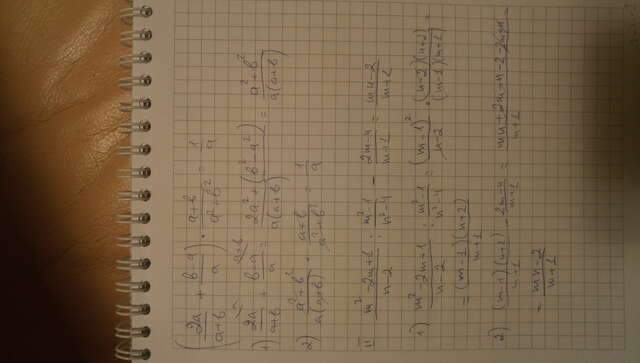 (2a/(a+b) + (b-a)/a) · (a+b)/(a²+b²) = 1/a
1) 2a/(a+b) + (b-a)/a = (2a²+(b²-a²))/(a(a+b)) = (a²+b²)/(a(a+b))
2) (a²+b²)/(a(a+b)) · (a+b)/(a²+b²) = 1/a
(m²-2m+1)/(n-2) : (m²-1)/(n²-4) - (2m-n)/(m+1) = (mn-2)/(m+1)
1) (m²-2m+1)/(n-2) : (m²-1)/(n²-4) = (m-1)²/(n-2) · ((n-2)(n+2))/((m-1)(m+1)) =
= ((m-1)(n+2))/(m+1)
2) ((m-1)(n+2))/(m+1) - (2m-n)/(m+1) = (mn+2m-n-2-2m+n)/(m+1) =
= (mn-2)/(m+1)